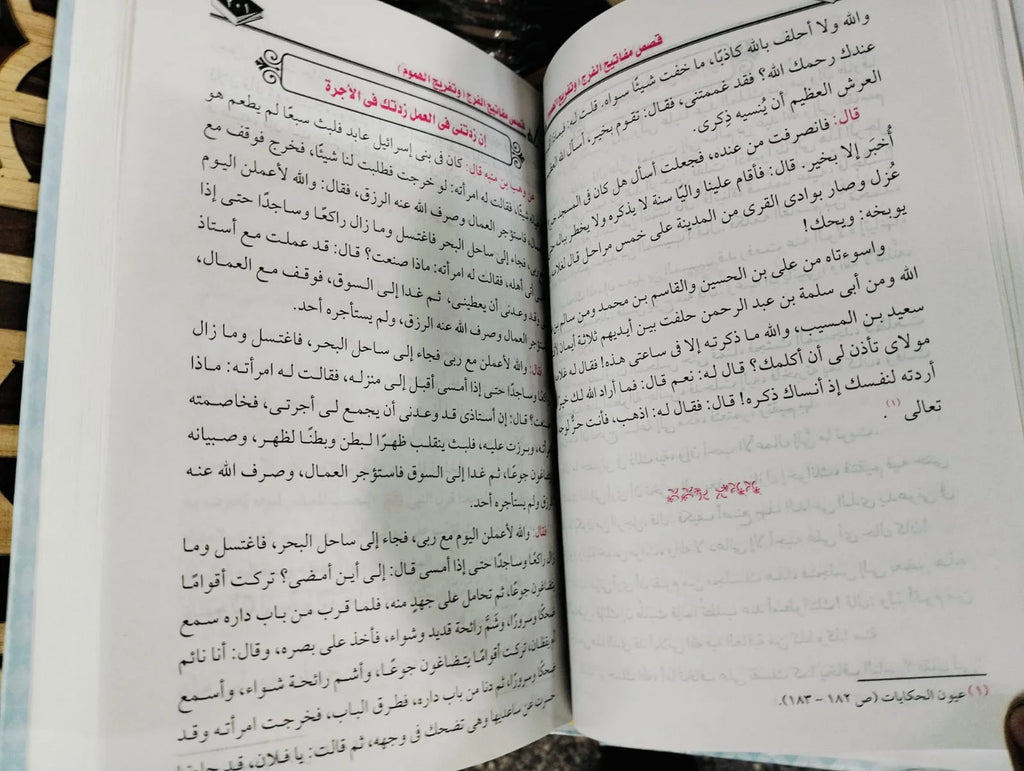 قصص مفاتيح الفرج (وتفريج الهموم
والله ولا أحلف بالله كاذبًا، ما خفت شيئًا سواه. قلت له:
عندك رحمك الله؟ فقد غممتنى، فقال: تقوم بخير، أسأل الله
العرش العظيم أن يُنسيه ذِكرى.
قال: فانصرفت من عنده، فجعلت أسأل هل كان فى المسجد
أُخبَر إلا بخير. قال: فأقام علينا واليًا سنة لا يذكره ولا يخطر بباله
عُزل وصار بوادى القرى من المدينة على خمس مراحل قال لغلامه
يوبخه: ويحك!
واسوءتاه من على بن الحسين والقاسم بن محمد ومن سالم بن
الله ومن أبى سلمة بن عبد الرحمن حلفت بين أيديهم ثلاثة أيمان
سعيد بن المسيب، والله ما ذكرته إلا فى ساعتى هذه! فقال له غلامه
مولاى تأذن لى أن أكلمك؟ قال له: نعم قال: فما أراد الله لك خير
أردته لنفسك إذ أنساك ذكره! قال: فقال له: اذهب، فأنت حرٌّ لوجه
تعالى (١).
(١) عيون الحكايات (ص ١٨٢ - ١٨٣).
قصص مفاتيح الفرج (وتفريج الهموم)
إن زدتنى فى العمل زدتك فى الأجرة
عن وهب بن منبه قال: كان فى بنى إسرائيل عابد فلبث سبعًا لم يطعم هو
شيئًا، فقالت له امرأته: لو خرجت فطلبت لنا شيئًا، فخرج فوقف مع
فاستؤجر العمال وصرف الله عنه الرزق، فقال: والله لأعملن اليوم
ربى، فجاء إلى ساحل البحر فاغتسل وما زال راكعًا وساجدًا حتى إذا
أتى أهله، فقالت له امرأته: ماذا صنعت؟ قال: قد عملت مع أستاذ
وقد وعدنى أن يعطينى، ثم غدا إلى السوق، فوقف مع العمال،
العمال وصرف الله عنه الرزق، ولم يستأجره أحد.
فقال: والله لأعملن مع ربى فجاء إلى ساحل البحر، فاغتسل وما زال
وساجدًا حتى إذا أمسى أقبل إلى منزله، فقالت له امرأته: ماذا
قال: إن أستاذى قد وعدنى أن يجمع لى أجرتى، فخاصمته
وبرزت عليه، فلبث يتقلب ظهرًا لبطن وبطنًا لظهر، وصبيانه
جوعًا، ثم غدا إلى السوق فاستؤجر العمال، وصرف الله عنه
ولم يستأجره أحد.
فقال: والله لأعملن اليوم مع ربى، فجاء إلى ساحل البحر، فاغتسل وما
زال راكعًا وساجدًا حتى إذا أمسى قال: إلى أين أمضى؟ تركت أقوامًا
يتضاغون جوعًا، ثم تحامل على جهدٍ منه، فلما قرب من باب داره سمع
ضحكًا وسرورًا، وشَمَّ رائحة قديد وشواء، فأخذ على بصره، وقال: أنا نائم
أم يقظان، تركت أقوامًا يتضاغون جوعًا، وأشم رائحة شواء، وأسمع
ضحكًا وسرورًا، ثم دنا من باب داره، فطرق الباب، فخرجت امرأته وقد
حسرت عن ساعديها وهى تضحك فى وجهه، ثم قالت: يا فلان، قد